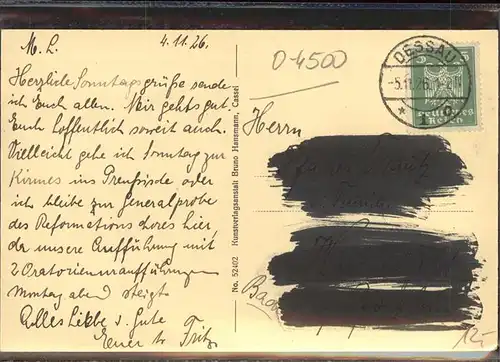 M. L. 4.11.26.
Herzliche Sonntagsgrüße sende
ich Euch allen. Mir gehts gut.
Euch hoffentlich soweit auch.
Vielleicht gehe ich Sonntag zur
Kirmes ins Preußische oder
ich bleibe zur Generalprobe
des Reformationschores hier,
der unsere Aufführung mit
2 Oratorienuraufführungen
Montag abend steigt.
Alles Liebe u. Gute
Euer Fritz
No. 52402 Kunstverlagsanstalt Bruno Hansmann, Cassel
0-4500
DESSAU
-5.11.26.
5 5
Deutsches
Reich
Herrn
12,-